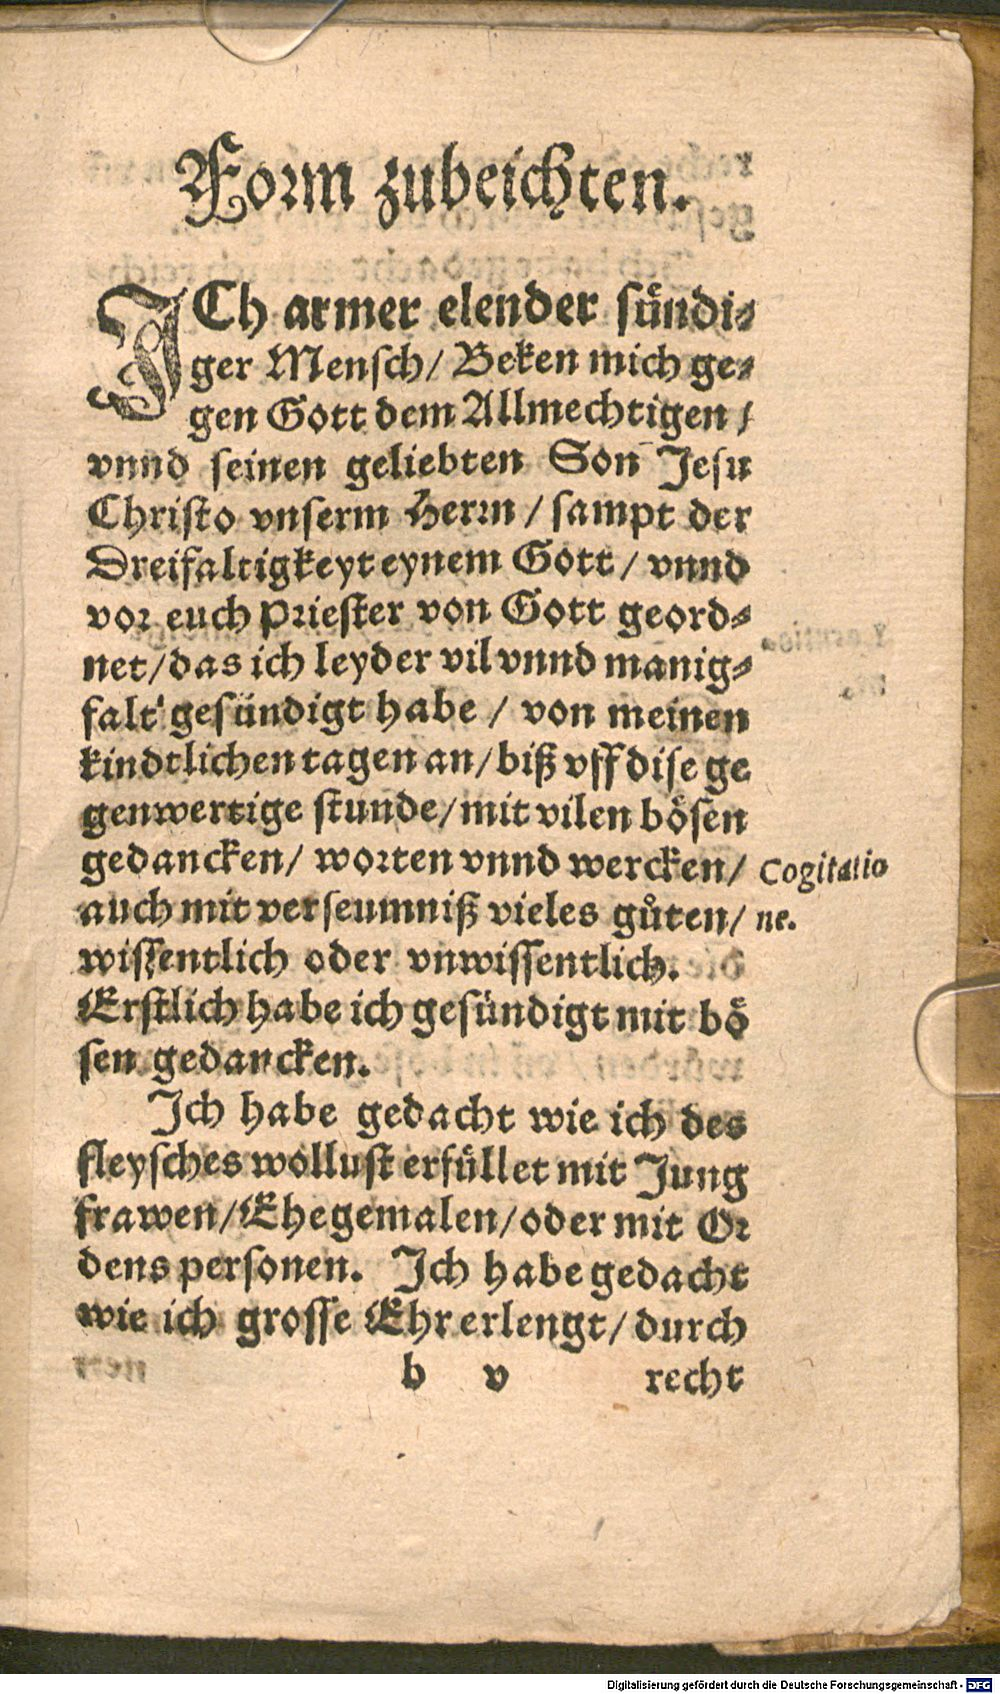 Form zubeichten.
ICh armer elender sündi⸗
ger Mensch/ Beken mich ge⸗
gen Gott dem Allmechtigen/
vnnd seinen geliebten Son Jesu
Christo vnserm Herrn/ sampt der
Dreifaltigkeyt eynem Gott/ vnnd
vor euch Priester von Gott geord⸗
net/ das ich leyder vil vnnd manig⸗
falt gesündigt habe/ von meinen
kindtlichen tagen an/ biß vff dise ge
genwertige stunde/ mit vilen bösen
gedancken/ worten vnnd wercken/
auch mit verseumniß vieles gůten/
wissentlich oder vnwissentlich.
Cogitatio
ne.
Erstlich habe ich gesündigt mit bö
sen gedancken.
Ich habe gedacht wie ich des
fleysches wollust erfüllet mit Jung
frawen/ Ehegemalen/ oder mit Or
dens personen. Ich habe gedacht
wie ich grosse Ehr erlengt/ durch
b v recht
Digitalisierung gefördert durch die Deutsche Forschungsgemeinschaft - DFG